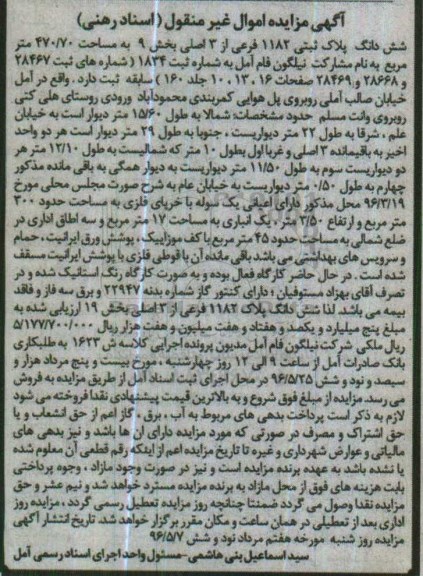 آگهی مزایده اموال غیر منقول (اسناد رهنی)
شش دانگ پلاک ثبتی ۱۱۸۲ فرعی از ۳ اصلی بخش ۹ به مساحت ۴۷۰/۷۰ متر
مربع به نام مشارکت نیلگون فام آمل به شماره ثبت ۱۸۳۴ (شماره های ثبت ۲۸۴۶۷
و ۲۸۶۶۸ و ۲۸۴۶۹ صفحات ۱۶ ، ۱۳ ، ۱۰ جلد ۱۶۰) سابقه ثبت دارد . واقع در آمل
خیابان صالب آملی روبروی پل هوایی کمربندی محمودآباد ورودی روستای هلی کتی
روبروی وانت مسلم حدود مشخصات: شمالا به طول ۱۵/۶۰ متر دیوار است به خیابان
علم ، شرقا به طول ۲۲ متر دیواریست ، جنوبا به طول ۲۹ متر دیوار است هر دو واحد
اخیر به باقیمانده ۳ اصلی و غربا اول بطول ۱۰ متر که شمالیست به طول ۱۲/۱۰ متر هر
دو دیواریست سوم به طول ۱۱/۵۰ متر دیواریست به دیوار همگی به باقی مانده مذکور
چهارم به طول ۰/۵۰ متر دیواریست به خیابان عام به شرح صورت مجلس محلی مورخ
۹۶/۳/۱۹ محل مذکور دارای اعیانی یک سوله با خرپای فلزی به مساحت حدود ۳۰۰
متر مربع و ارتفاع ۳/۵۰ متر ، یک انباری به مساحت ۱۷ متر مربع و سه اطاق اداری در
ضلع شمالی به مساحت حدود ۴۵ متر مربع با کف موزاییک ، پوشش ورق ایرانیت ، حمام
و سرویس های بهداشتی می باشد باقی مانده آن با قوطی فلزی با پوشش ایرانیت مسقف
شده است . در حال حاضر کارگاه فعال بوده و به صورت کارگاه رنگ استاتیک شده و در
تصرف آقای بهزاد مستوفیان ؛ دارای کنتور گاز شماره بدنه ۲۲۹۴۷ و برق سه فاز و فاقد
بیمه می باشد. لذا شش دانگ پلاک ۱۱۸۲ فرعی از ۳ اصلی بخش ۱۹ ارزیابی شده به
مبلغ پنج میلیارد و یکصد و هفتاد و هفت میلیون و هفت هزار ریال ۵/۱۷۷/۷۰۰/۰۰۰
ریال ملکی شرکت نیلگون فام آمل مدیون پرونده اجرایی کلاسه ش ۱۶۲۳ به طلبکاری
بانک صادرات آمل از ساعت ۹ الی ۱۲ روز چهارشنبه ، مورخ بیست و پنج مرداد هزار و
سیصد و نود و شش ۹۶/۵/۲۵ در محل اجرای ثبت اسناد آمل از طریق مزایده به فروش
می رسد. مزایده از مبلغ فوق شروع و به بالاترین قیمت پیشنهادی نقدا فروخته می شود
لازم به ذکر است پرداخت بدهی های مربوط به آب ، برق ، گاز اعم از حق انشعاب و یا
حق اشتراک و مصرف در صورتی که مورد مزایده دارای آن ها باشد و نیز بدهی های
مالیاتی و عوارض شهرداری و غیره تا تاریخ مزایده اعم از اینکه رقم قطعی آن معلوم شده
یا نشده باشد به عهده برنده مزایده است و نیز در صورت وجود مازاد ، وجوه پرداختی
بابت هزینه های فوق از محل مازاد به برنده مزایده مسترد خواهد شد و نیم عشر و حق
مزایده نقدا وصول می گردد ضمنا چنانچه روز مزایده تعطیل رسمی گردد ، مزایده روز
اداری بعد از تعطیلی در همان ساعت و مکان مقرر برگزار خواهد شد. تاریخ انتشار آگهی
مزایده روز شنبه مورخه هفتم مرداد نود و شش ۹۶/۵/۷
سید اسماعیل بنی هاشمی - مسئول واحد اجرای اسناد رسمی آمل